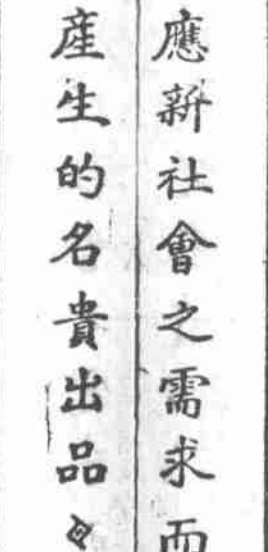 應新社會之需求而
産生的名貴出品